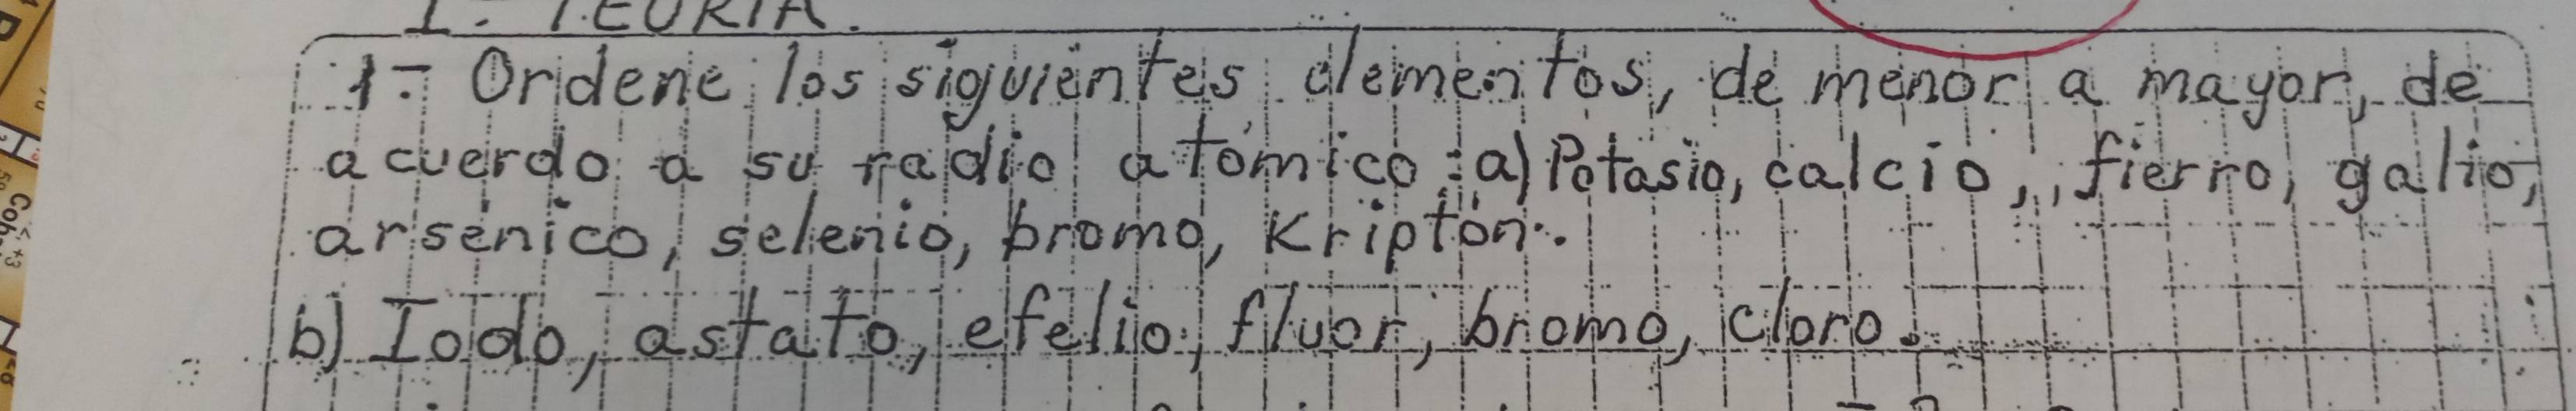 I.- TEORIA.
1.- Ordene los siguientes elementos, de menor a mayor, de
acuerdo a su radio atómico: a) Potasio, calcio, , fierro, galio,
arsénico, selenio, bromo, Kriptón.
b) Iodo, astato, efelio, fluor, bromo, cloro.